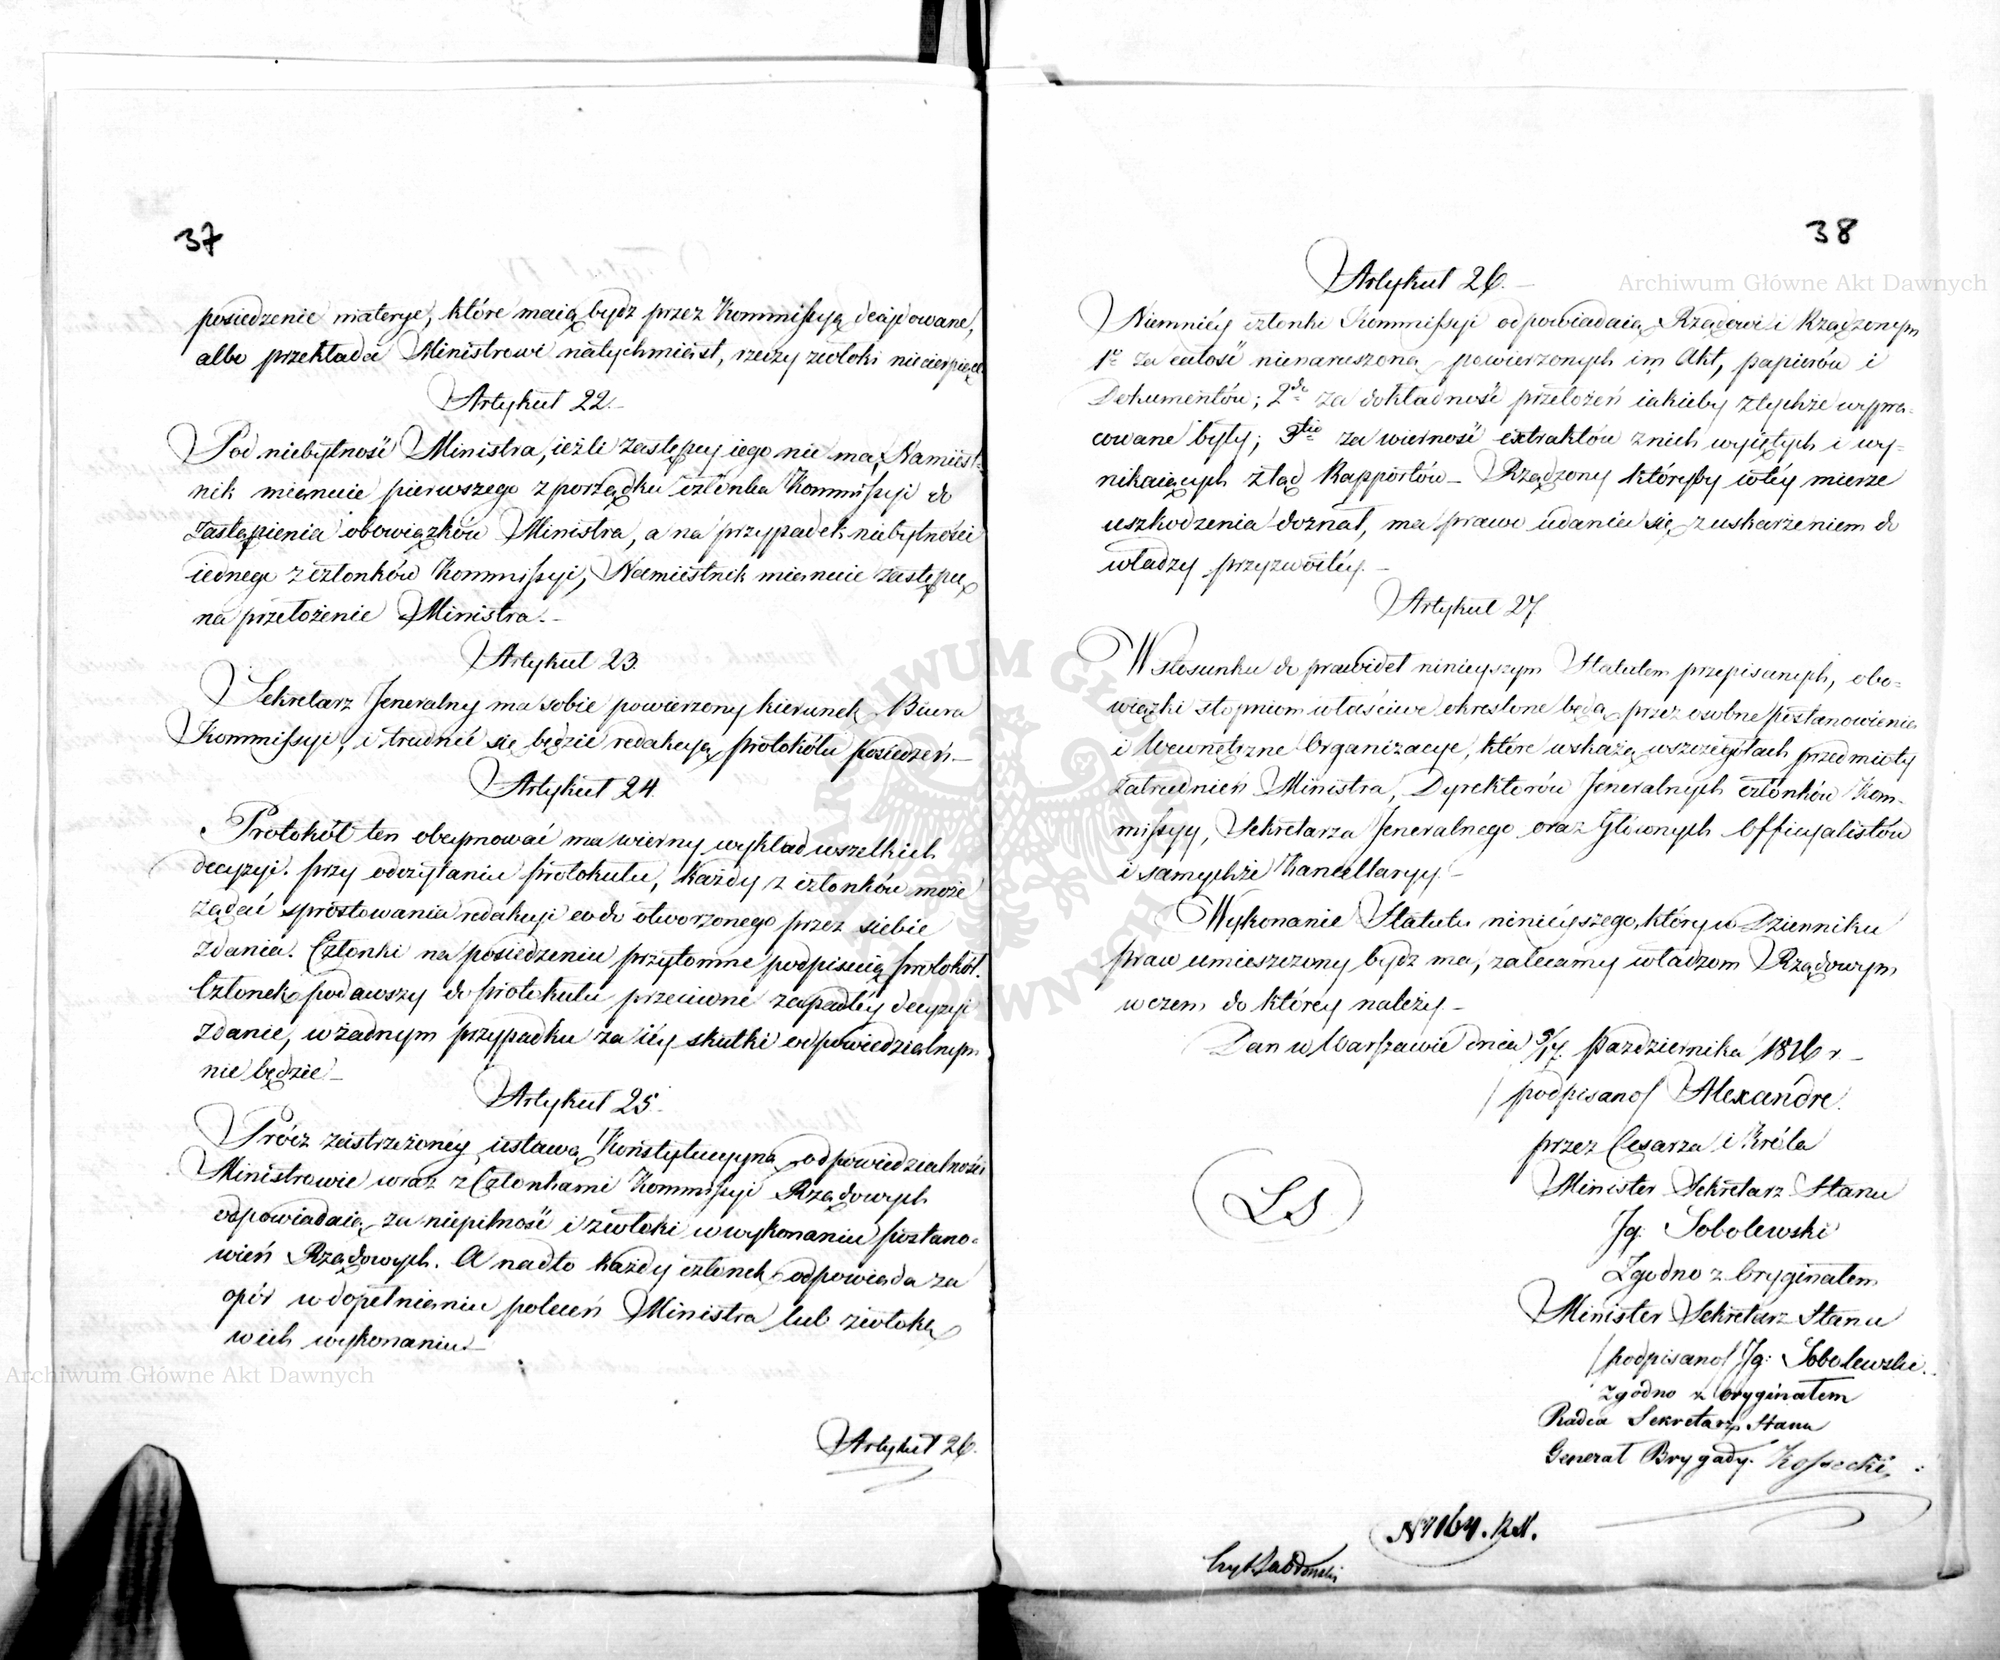 37
posiedzenie materye, które maią bydz przez Kommissyą decydowane,
albo przekłada Ministrowi natychmiast, rzeczy zwłoki niecierpiące
Artykuł 22.
Pod niebytność Ministra, ieżli zastępcy iego nie ma, Namiest-
nik mianuie pierwszego z porządku członka Kommissyi do
zastąpienia obowiązków Ministra, a na przypadek niebytności
iednego z członków Kommissyi, Namiestnik mianuie zastępcę
na przełożenie Ministra.
Artykuł 23.
Sekretarz Jeneralny ma sobie powierzony kierunek Biura
Kommissyi, i trudnić się będzie redakcyą protokółu posiedzeń.
Artykuł 24.
Protokół ten obeymować ma wierny wykład wszelkich
decyzyi. przy odczytaniu protokułu, każdy z członków może
żądać sprostowania redakcyi co do otworzonego przez siebie
zdania. Członki na posiedzeniu przytomne podpisuią protokół.
Członek podawszy do protokułu przeciwne zapadłéy decyzyi
zdanie, w żadnym przypadku za iéy skutki odpowiedzialnym
nie będzie
Artykuł 25.
Prócz zastrzeżonéy ustawą Konstytucyyną odpowiedzialności
Ministrowie wraz z Członkami Kommissyi Rządowych
odpowiadaią za niepilność i zwłoki w wykonaniu postano-
wień Rządowych. A nadto każdy członek odpowiada za
opór w dopełnieniu poleceń Ministra lub zwłokę
w ich wykonaniu
Artykuł 26.
38
Artykuł 26.
Niemniéy członki Kommissyi odpowiadaią Rządowi i Rządzonym
1o za całość nienaruszoną powierzonych im Akt, papierów i
Dokumentów; 2do za dokładność przełożeń iakieby z tychże wypra-
cowane były; 3tio za wierność extraktów z nich wyiętych i wy-
nikaiących ztąd Rapportów. Rządzony któryby w téy mierze
uszkodzenia doznał, ma prawo udania się z uskarżeniem do
władzy przyzwoitéy.
Artykuł 27
W stosunku do prawideł ninieyszym Statutem przepisanych, obo-
wiązki stopniom właściwe określone będą przez osobne postanowienia
i Wewnętrzne Organizacye, które wskażą w szczegółach przedmioty
zatrudnień Ministra, Dyrektorów Jeneralnych członków Kom-
missyy, Sekretarza Jeneralnego oraz Głównych Officyalistów
i samychże Kancellaryy.
Wykonanie Statutu ninieyszego, który w Dzienniku
praw umieszczony bydz ma, zalecamy władzom Rządowym
w czem do którey należy.
Dan w Warszawie dnia 5/17. Pazdziernika 1816 r
/podpisano/ Alexandre.
przez Cesarza i Króla
Minister Sekretarz Stanu
Jg: Sobolewski
Zgodno z Oryginałem
Minister Sekretarz Stanu
/podpisano/ Jg: Sobolewski.
zgodno z oryginałem
Radca Sekretarz Stanu
Generał Brygady. Kossecki
LS
No 7164. R.N.
Archiwum Główne Akt Dawnych
Archiwum Główne Akt Dawnych
ARCHIWUM GŁÓWNE AKT DAWNYCH